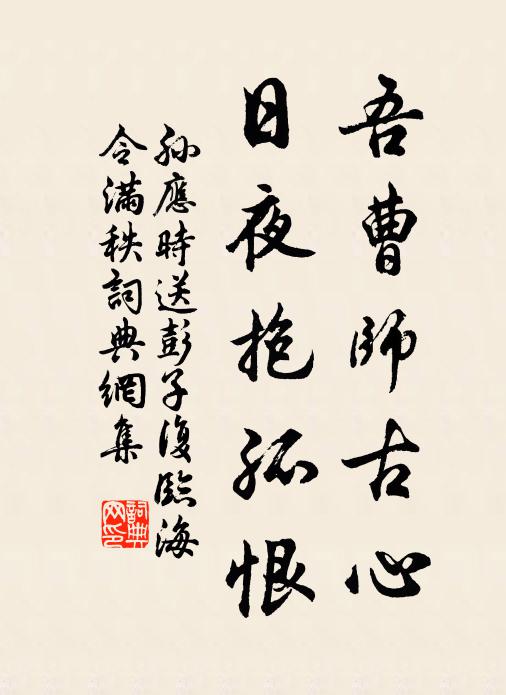 吾曹師古心
日夜抱孤恨
孙應時送彭子復臨海
令滿秩詞典網集
詞典网印